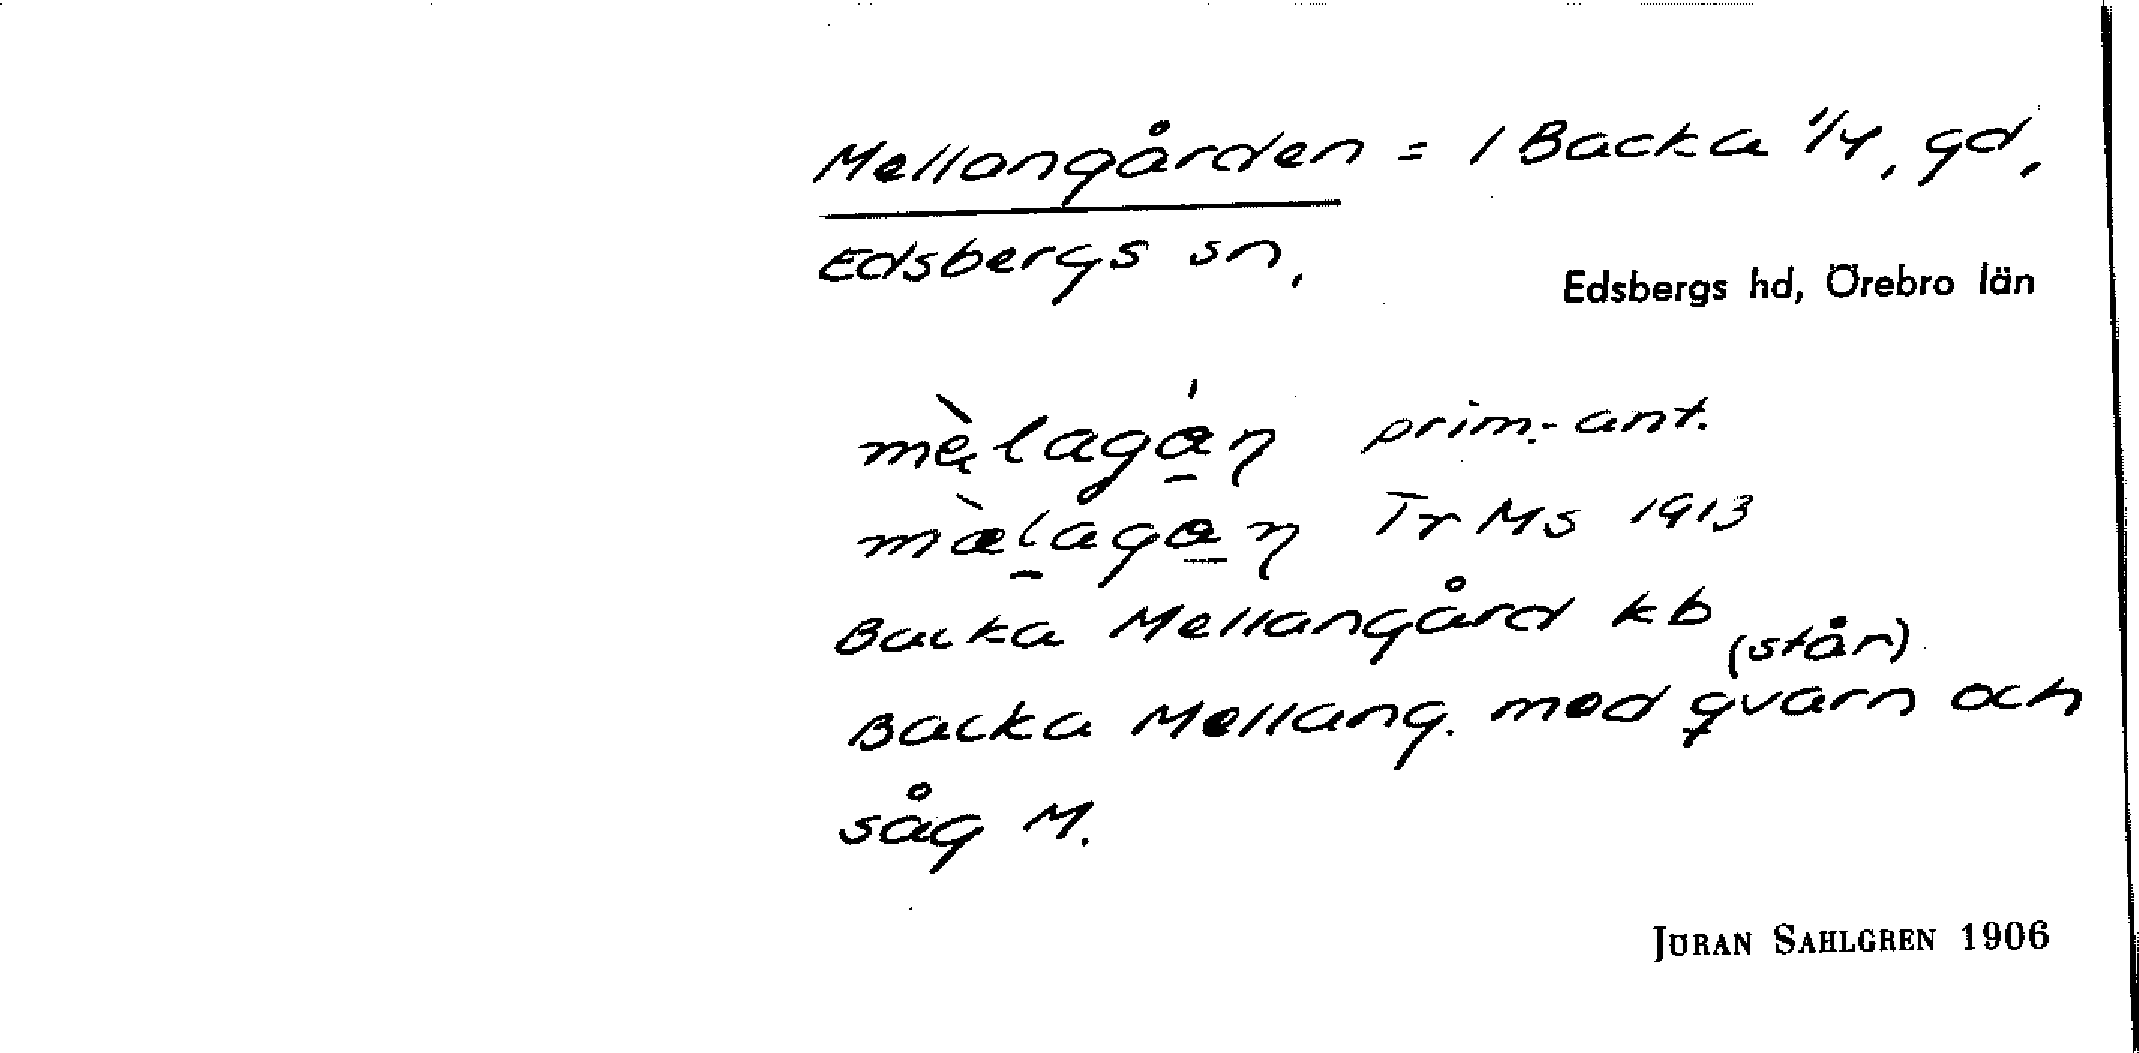 Mellangården = 1 Backa 1/4, gd,
Edsbergs sn,
Edsbergs hd, Örebro län
mèlaga̱ṇ prim.-ant.
mæ̀laga̱ṇ Tr Ms 1913
Backa Mellangård kb
(står)
Backa Mellang. med qvarn och
såg M.
JÖRAN SAHLGREN 1906